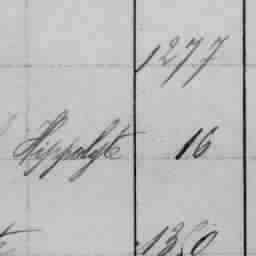 1277
Hippolyte 16
1350